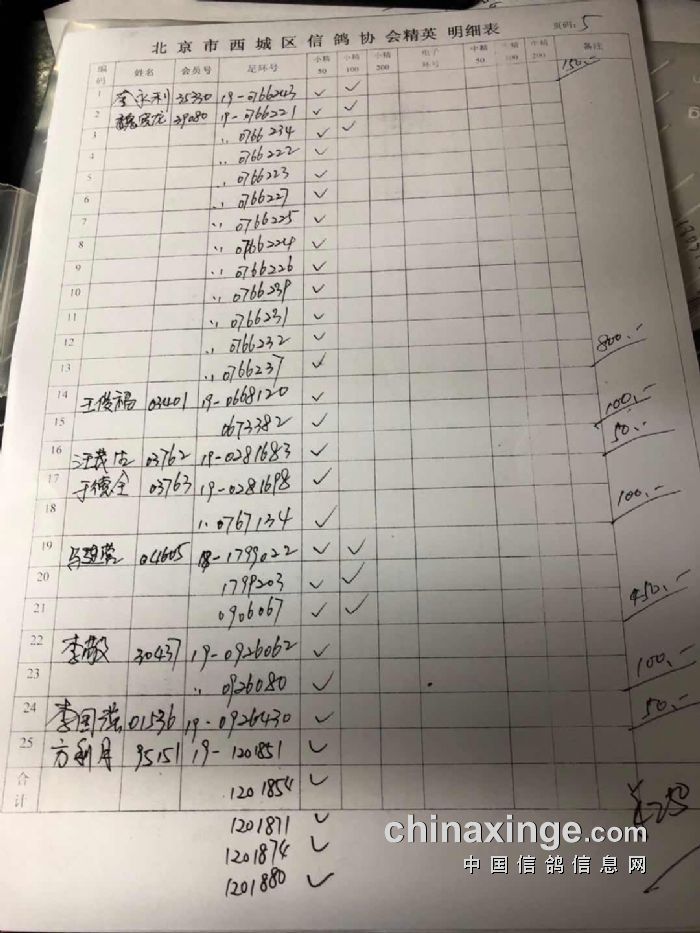 北京市西城区信鸽协会精英 明细表
页码: 5
编码 姓名 会员号 足环号 小精50 小精100 小精200 电子环号 中精50 中精100 中精200 备注
150.-
1 永利 35330 19-0766243 ✓ ✓
2 龙 39080 19-0766221 ✓ ✓
3 ,, 0766234 ✓ ✓
4 ,, 0766222 ✓
5 ,, 0766223 ✓
6 ,, 0766227 ✓
7 ,, 0766225 ✓
8 ,, 0766224 ✓
9 ,, 0766226 ✓
10 ,, 0766239 ✓
11 ,, 0766231 ✓
12 ,, 0766232 ✓
13 ,, 0766237 ✓ 800.-
14 王俊福 03401 19-0668120 ✓
15 0673382 ✓ 100.-
16 汪茂 03762 19-0281683 ✓ 50.-
17 于德全 03763 19-0281698 ✓
18 ,, 0767134 ✓ 100.-
19 04605 18-1799022 ✓ ✓
20 1799203 ✓ ✓
21 0906067 ✓ ✓ 450.-
22 李敬 30437 19-0926062 ✓
23 ,, 0926080 ✓ 100.-
24 李国 01536 19-0926430 ✓ 50.-
25 方利月 95151 19-1201851 ✓
合计 1201854 ✓
1201871 ✓
1201874 ✓
1201880 ✓
¥250
chinaxinge.com
中国信鸽信息网